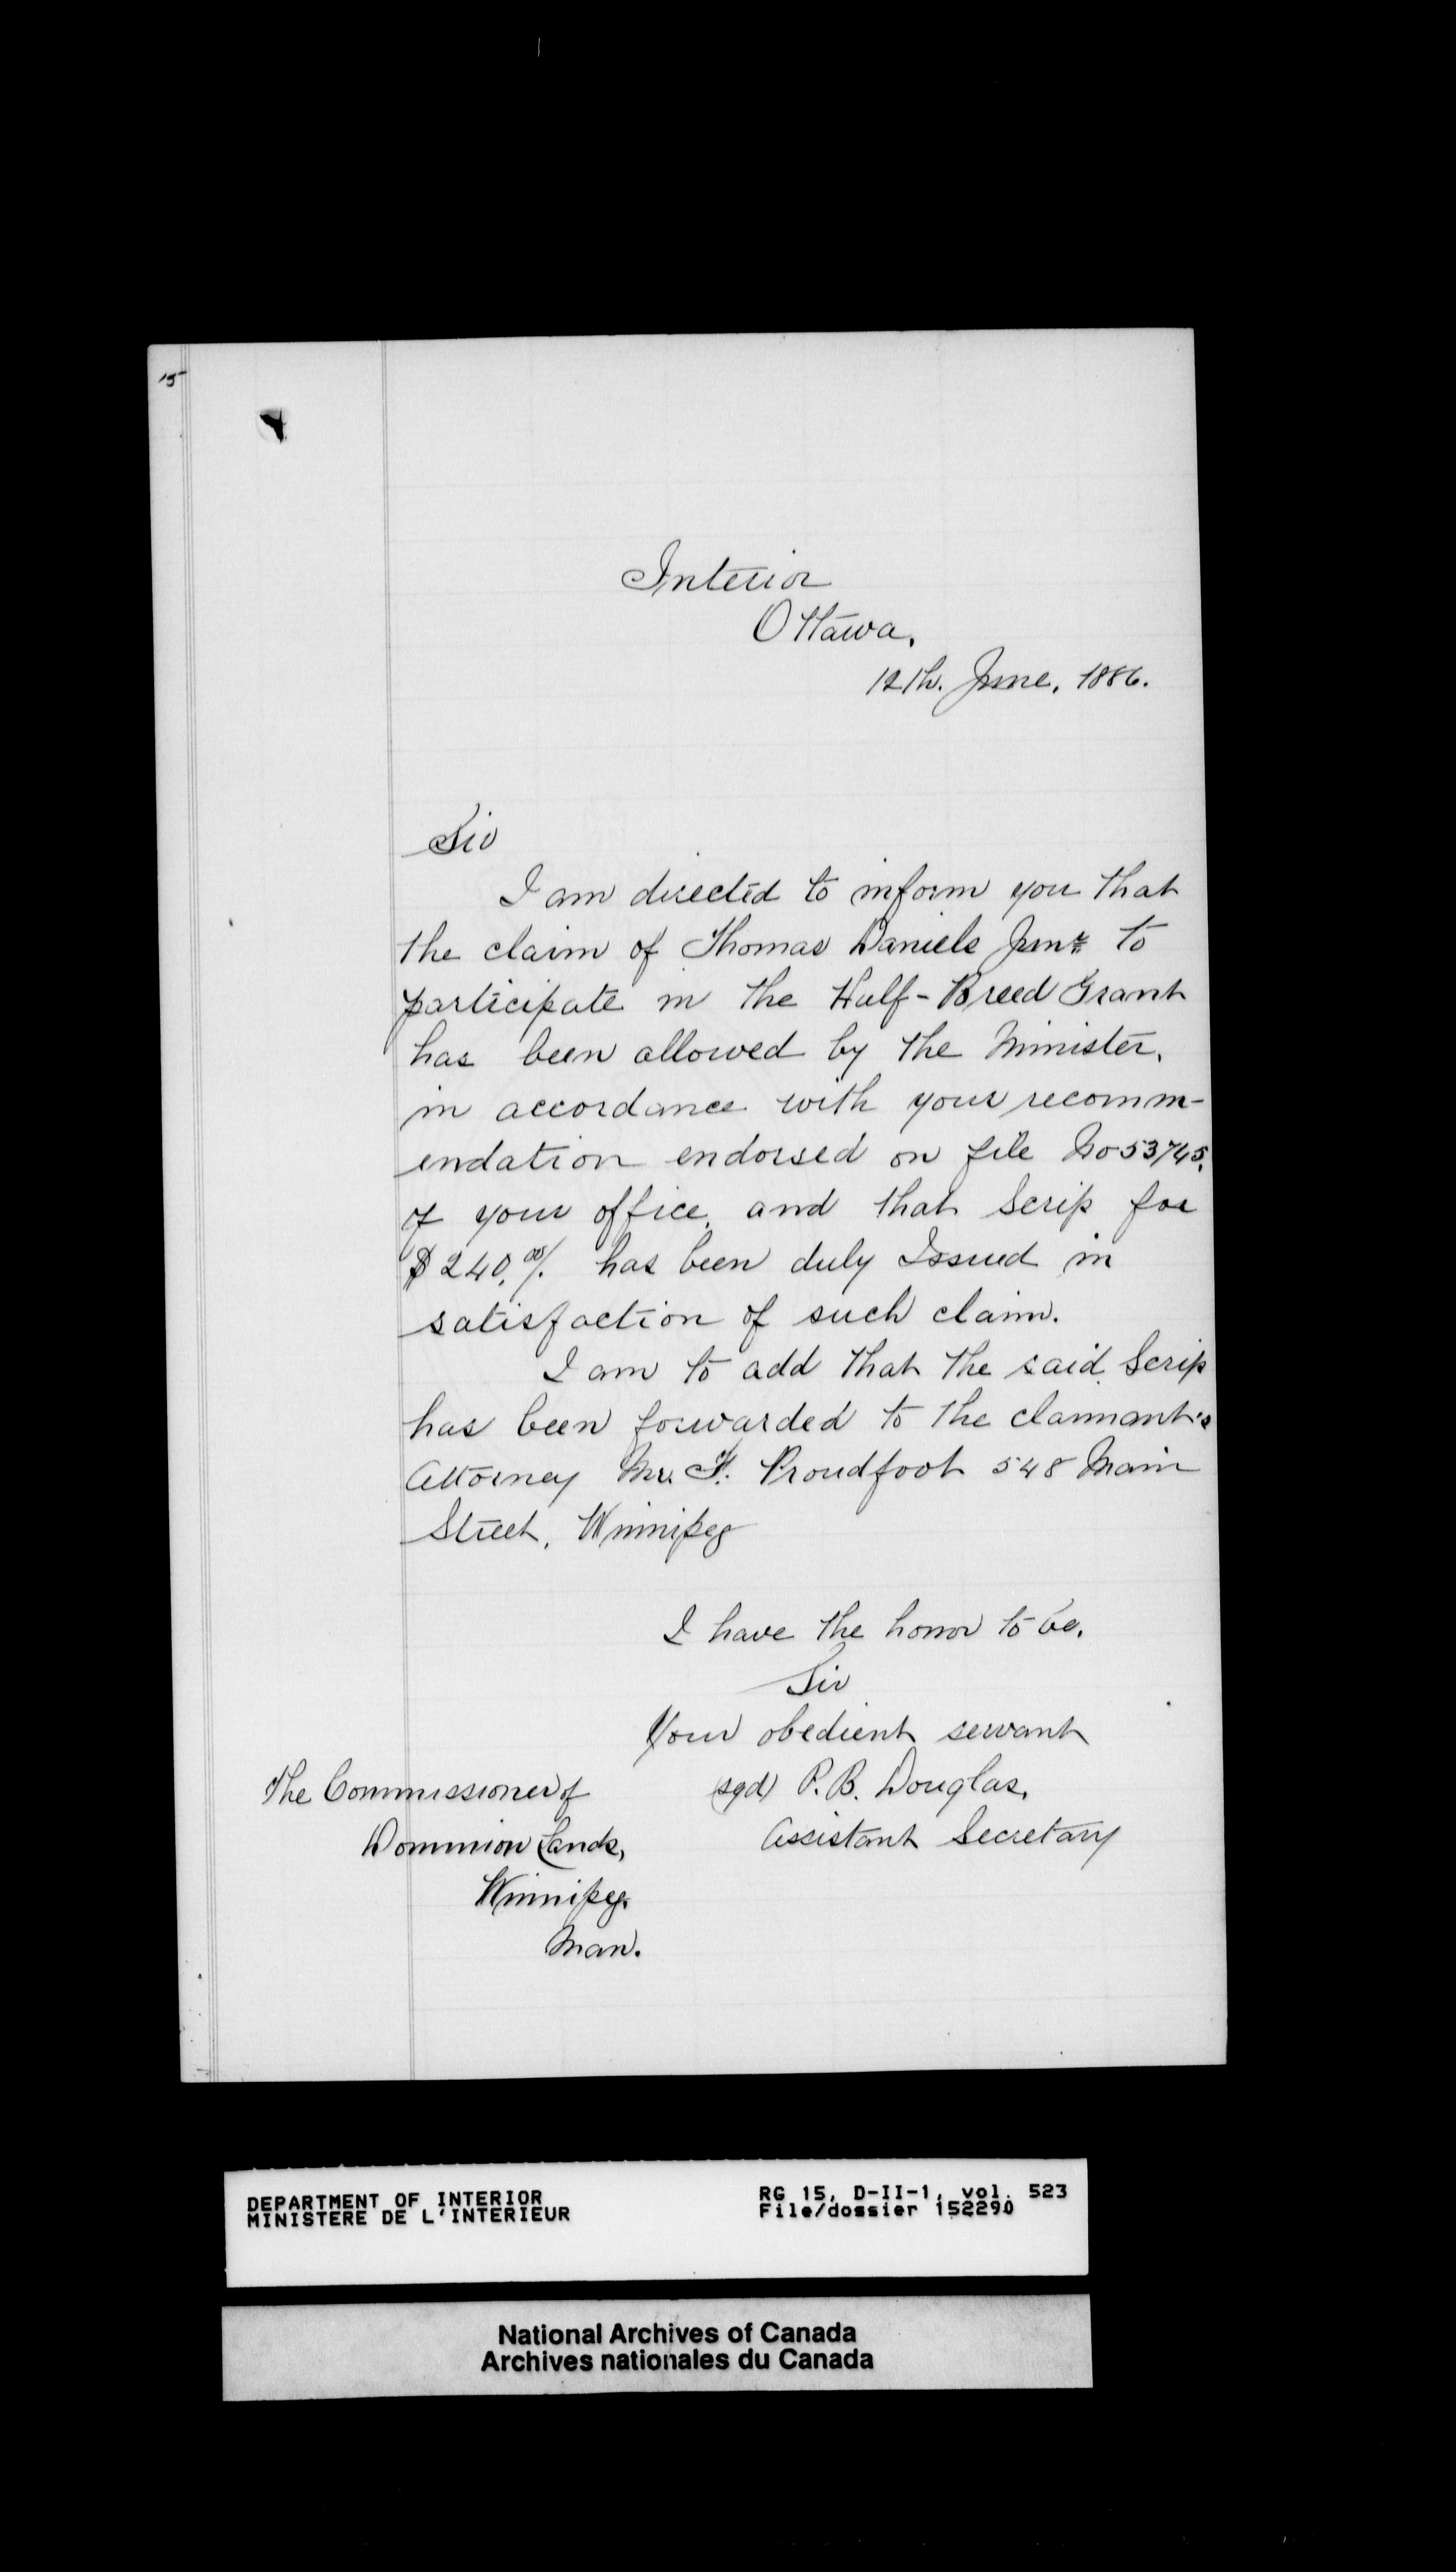 15
Interior
Ottawa,
12th. June, 1886.
Sir
I am directed to inform you that
the claim of Thomas Daniels Junr to
participate in the Half-Breed Grant
has been allowed by the Minister,
in accordance with your recomm-
endation endorsed on file No 53745,
of your office, and that Scrip for
$240.00/. has been duly Issued in
satisfaction of such claim.
I am to add that the said Scrip
has been forwarded to the claimant's
Attorney Mr. F. Proudfoot 548 Main
Street, Winnipeg
I have the honor to be,
Sir
Your obedient servant
(sgd) P. B. Douglas,
Assistant Secretary
The Commissioner of
Dominion Lands,
Winnipeg.
Man.
DEPARTMENT OF INTERIOR
MINISTERE DE L'INTERIEUR
RG 15, D-II-1, vol. 523
File/dossier 152290
National Archives of Canada
Archives nationales du Canada